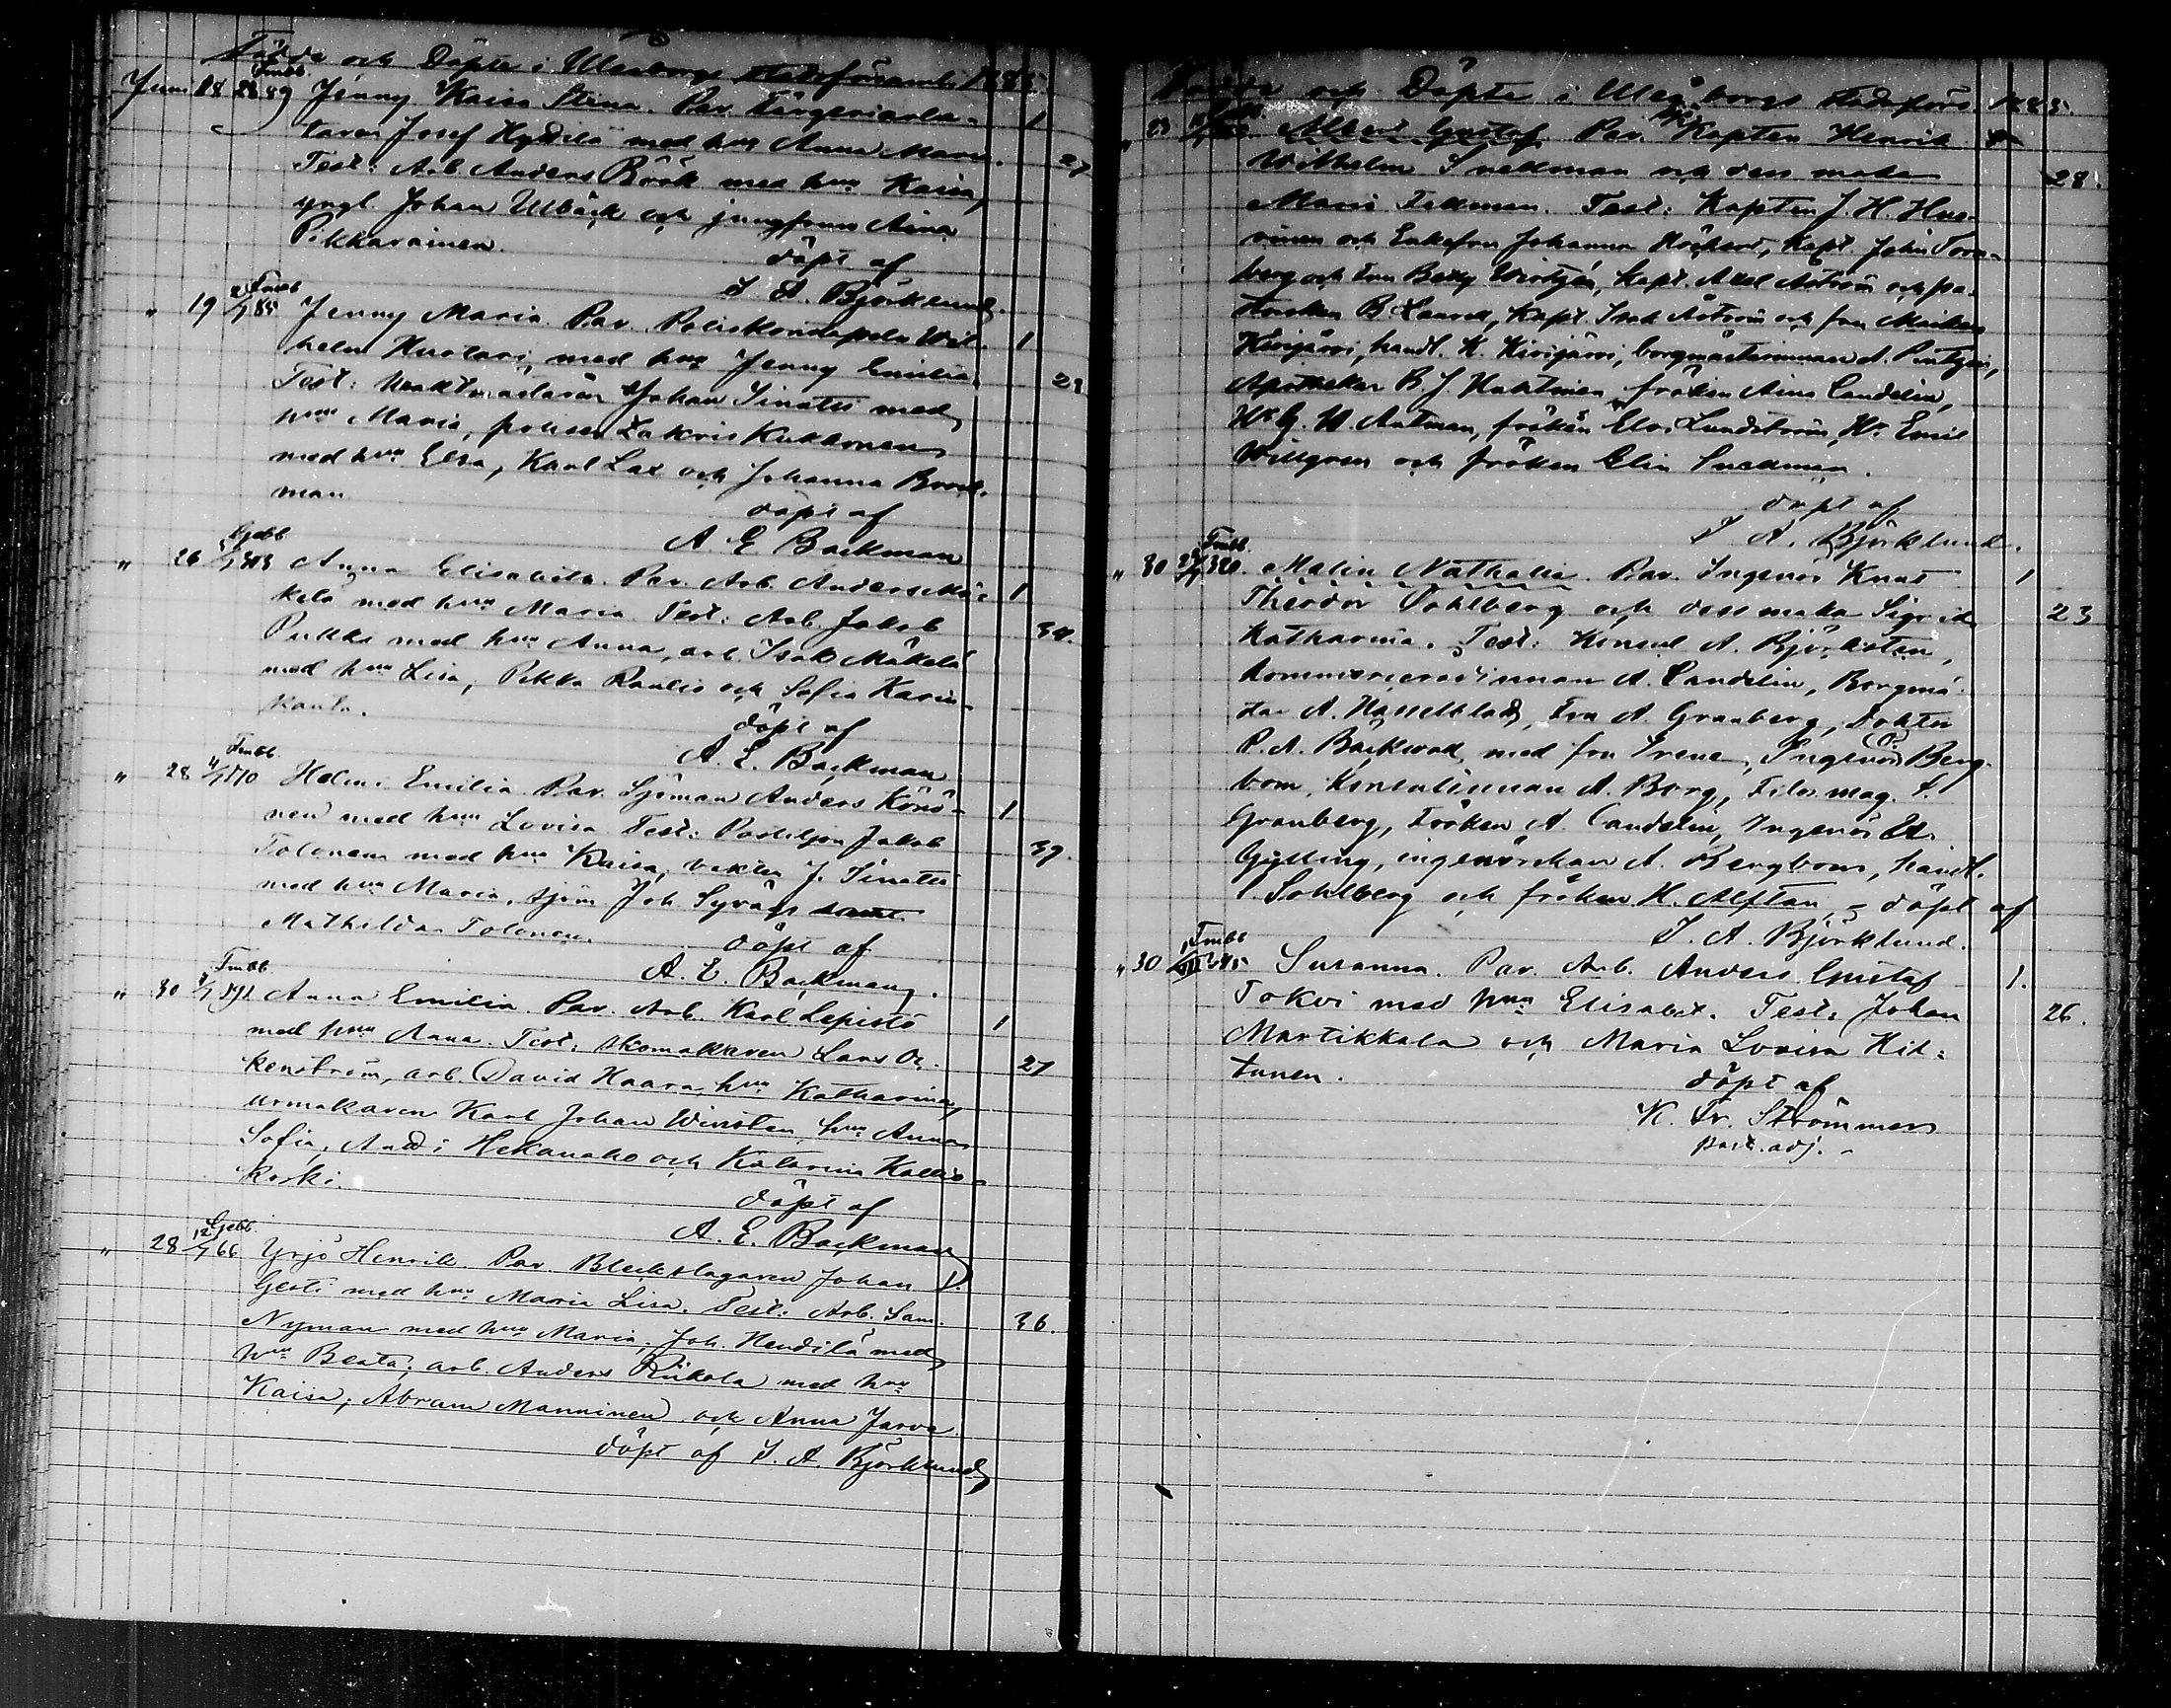 Födde och Döpte i Uleåborgs stadsförsaml. 1885.
Juni 18 28 Fmbb. 89 Jenny Kaisa Stina. Par. Färgeriarbe- 1
taren Josef Hydilä med hru Anna Maria. 27
Test: Arb. Anders Böök med hru Kaisa,
yngl. Johan Ulbäck och jungfrun Aina
Pikkarainen.
döpt af
I. A. Björklund.
" 19 2/7 Fmbb 85 Jenny Maria. Par. Poliskonstapeln Wil- 1
helm med hru Jenny Emilia. 29
Test: Vaktmästaren Johan Sinatti med
hru Maria, polisen Zakris Kukkonen
med hru Elsa, Karl Lax och Johanna
man
döpt af
A. E. Backman
" 26 Gebb Anna Elisabeth. Par. Arb. Anders Mä- 1
kelä med hru Maria. Test: Arb. Jakob 34.
Pukki med hru Anna, arb. Isak Mäkelä
med hru Lisa, Pekka Raulio och Sofia Karin-
kanta.
döpt af
A. E. Backman
" 28 4/7 Fmbb 170 Helmi Emilia. Par. Sjöman Anders Könö- 1
nen med hru Lovisa. Test: Postiljon Jakob 39.
Tolonen med hru Kaisa, vakten J. Sinatti
med hru Maria, sjöm. Joh. Syväjä samt
Mathilda Tolonen.
döpt af
A. E. Backman.
" 30 Fmbb. Anna Emilia. Par. Arb. Karl Lepistö 1
med hru Anna. Test: skomakaren Lars Oc- 27
kenström, arb. David Haara, hru Katharina,
urmakaren Karl Johan Wirsten, hru Anna
Sofia, And: Hekanaho och Katarina Kallio-
koski.
döpt af
A. E. Backman
" 28 12/7 Gebb. 66 Yrjö Henrik. Par. Bleckslagaren Johan 1.
Gesti med hru Maria Lisa. Test: Arb. Sam. 36.
Nyman med hru Maria, Joh. Hendilä med
hru Beata, arb. Anders Riikola med hru
Kaisa, Abram Manninen och Anna Jarva.
döpt af I. A. Björklund
Födde och Döpte i Uleåborgs stadsförs. 1885.
" 23 Albert Gustaf. Par. Sjö Kapten Henrik
Wilhelm Snellman och dess maka 28.
Maria Fellman. Test: Kapten J. H.
och Enkefru Johanna Höckert, Kapt. John Torn-
berg och fru Betty Wirtzén, Kapt. Axel Åström och pa-
storskan B. Laurell, Kapt. Isak Åström och fru Maiken
Kivijärvi, handl. K. Kivijärvi, borgmästarinnan A. Pentzin,
Apothekar B. J. Huhtinen, fröken Aina Candelin,
Hr G. W. Antman, fröken Elvi Lundström, Hr Emil
Willgren och fröken Elin Snellman.
döpt af
I. A. Björklund.
" 30 Fmbb. 320. Malin Nathalia. Par. Ingeniör Knut 1
Theodor Sohlberg och dess maka Sigrid 23
Katharina. Test: Konsul A. Björksten,
kommerserådinnan A. Candelin, Borgmä-
star A. Hasselblad, Fru A. Granberg, Doktor
P. A. Bäckwall, med fru Irene, Ingeniör O. Berg-
bom, Konsulinnan A. Borg, Filos. mag. S.
Granberg, Fröken A. Candelin, Ingeniör Ed.
Gylling, ingeniörskan A. Bergbom, handl.
Sohlberg och fröken H. Alftan. - döpt af
I. A. Björklund.
" 30 Fmbb Susanna. Par. Arb. Anders Gustaf 1.
Tokoi med hru Elisabet. Test: Johan 26.
Martikkala och Maria Lovisa Kit-
tunen.
döpt af
K. Fr. Strömmer
past. adj.